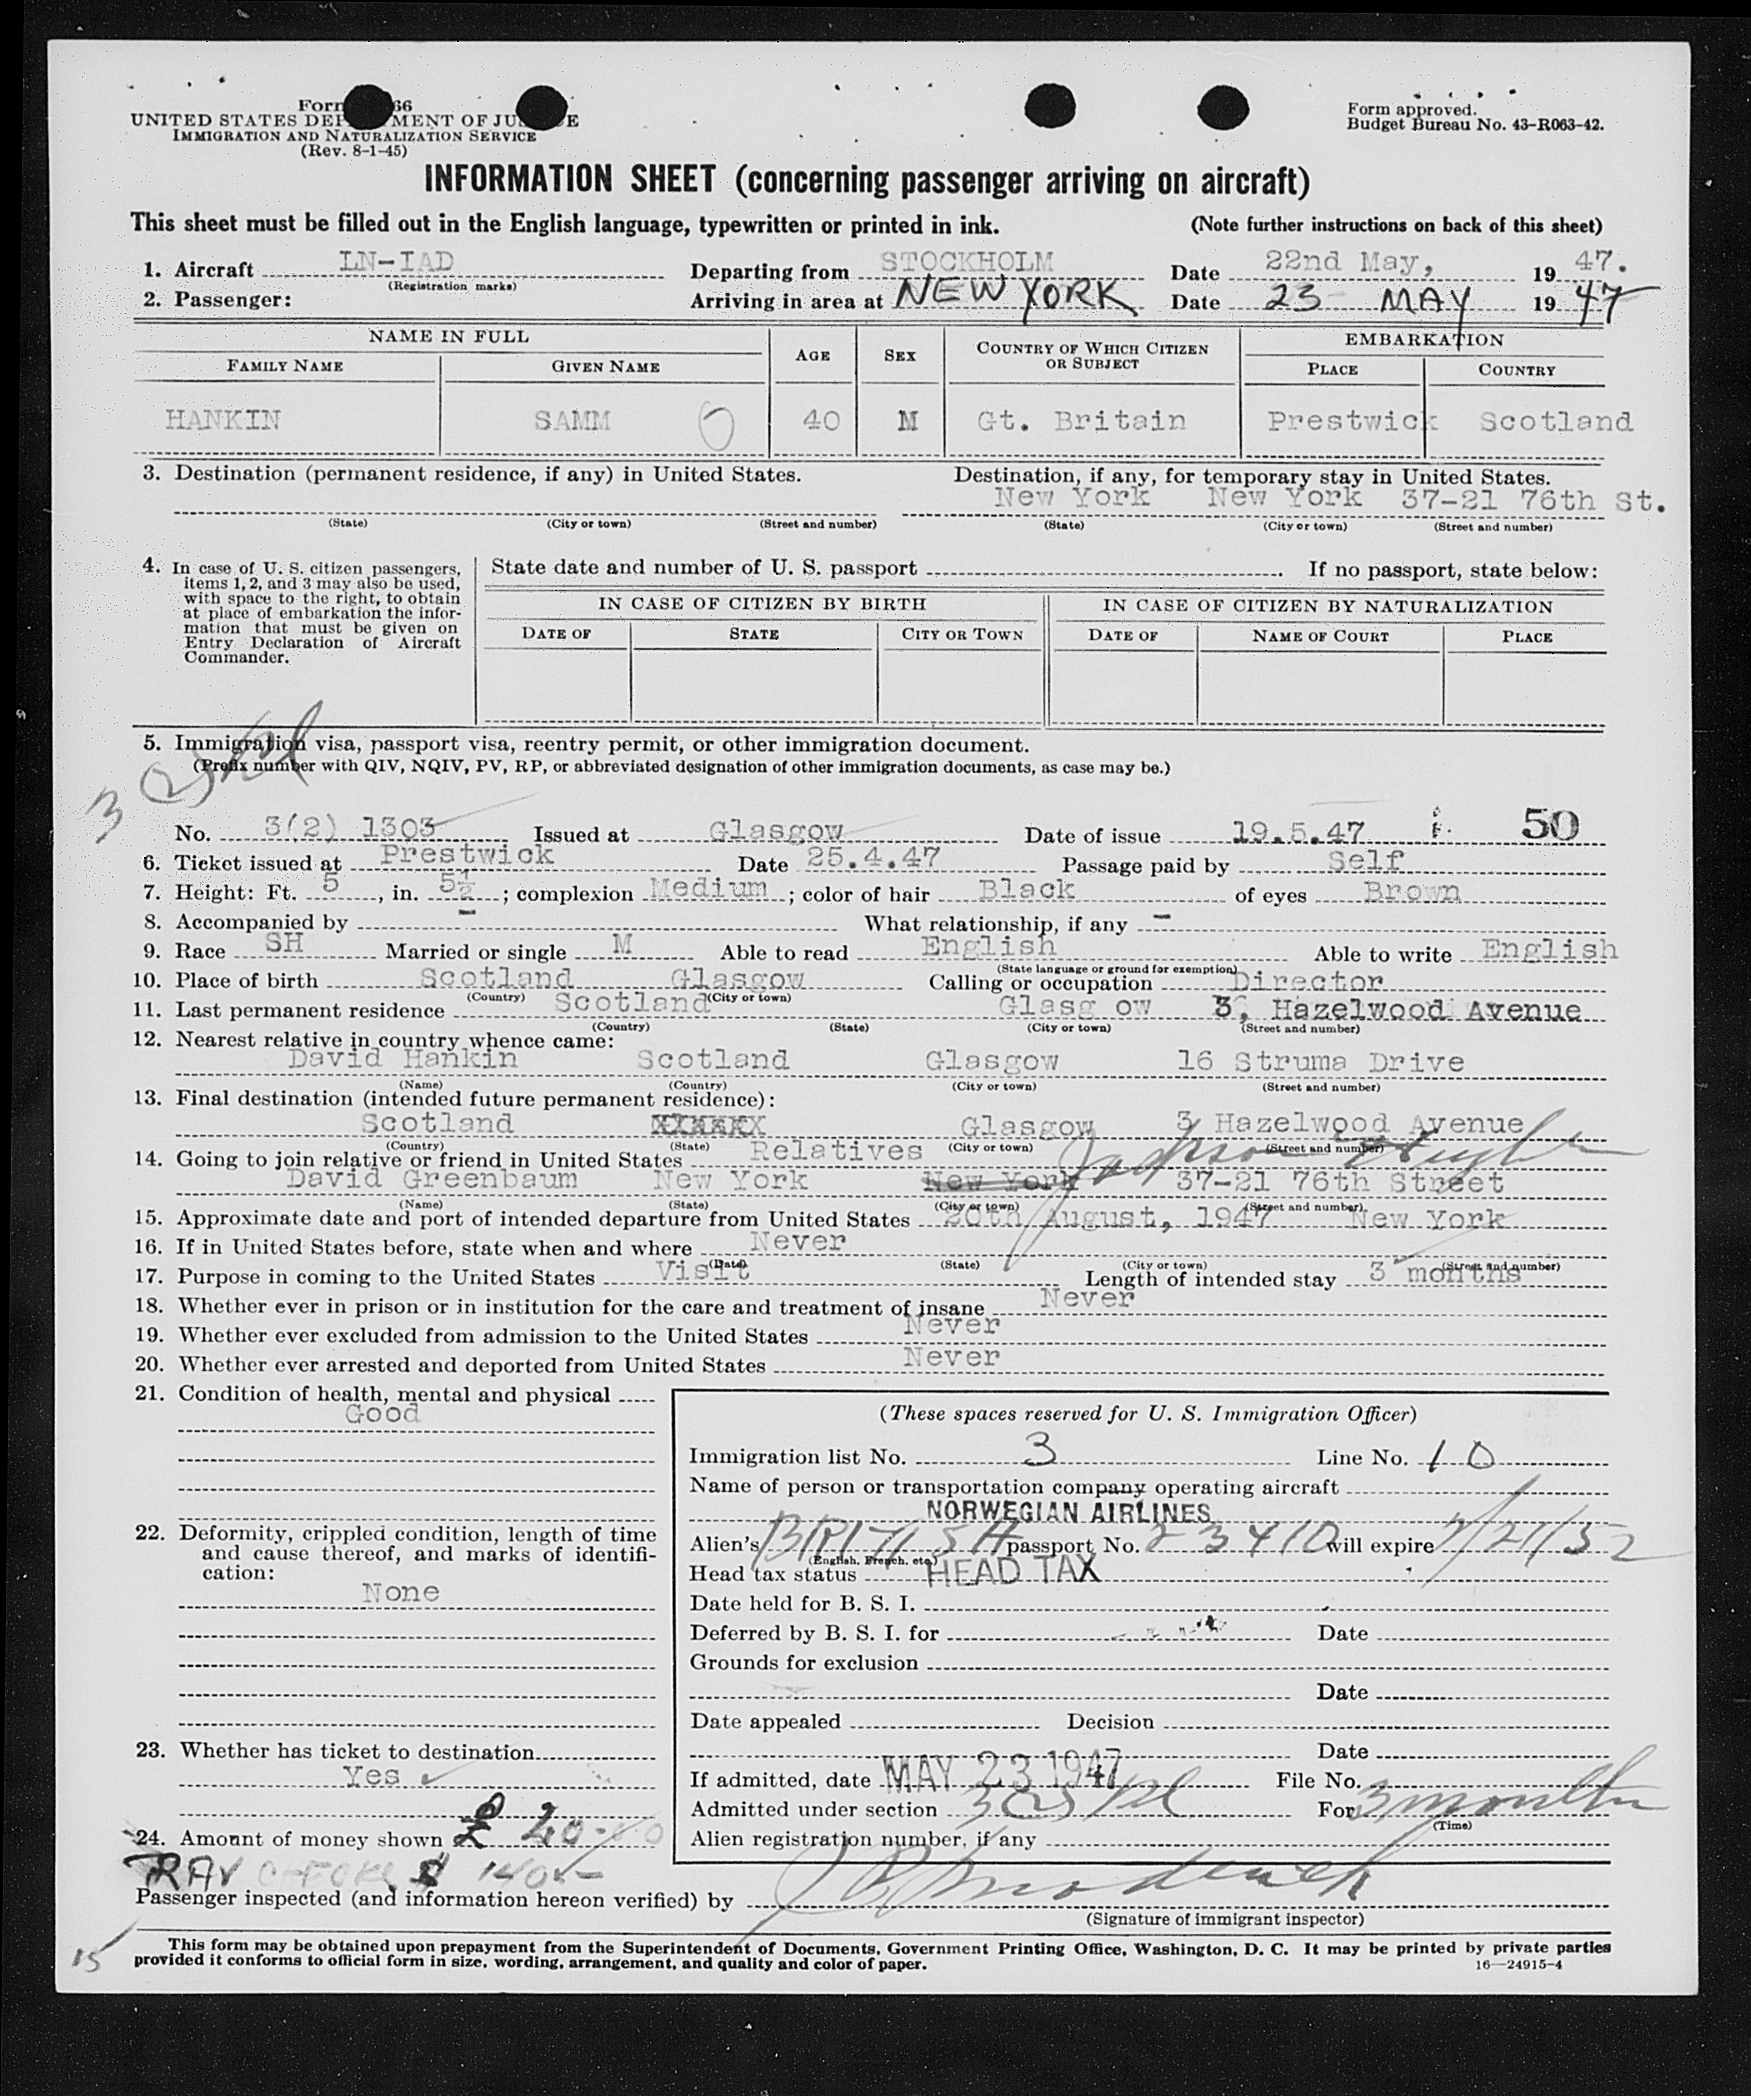 Form 66
UNITED STATES DEPARTMENT OF JUSTICE
IMMIGRATION AND NATURALIZATION SERVICE
(Rev. 8-1-45)
Form approved.
Budget Bureau No. 43-R063-42.
INFORMATION SHEET (concerning passenger arriving on aircraft)
This sheet must be filled out in the English language, typewritten or printed in ink. (Note further instructions on back of this sheet)
1. Aircraft LN-IAD Departing from STOCKHOLM Date 22nd May, 19 47.
(Registration marks)
2. Passenger: Arriving in area at NEW YORK Date 23 MAY 19 47
NAME IN FULL AGE SEX COUNTRY OF WHICH CITIZEN OR SUBJECT EMBARKATION
FAMILY NAME GIVEN NAME PLACE COUNTRY
HANKIN SAMM 40 M Gt. Britain Prestwick Scotland
3. Destination (permanent residence, if any) in United States. Destination, if any, for temporary stay in United States.
New York New York 37-21 76th St.
(State) (City or town) (Street and number) (State) (City or town) (Street and number)
4. In case of U. S. citizen passengers, items 1, 2, and 3 may also be used, with space to the right, to obtain at place of embarkation the information that must be given on Entry Declaration of Aircraft Commander.
State date and number of U. S. passport . If no passport, state below:
IN CASE OF CITIZEN BY BIRTH IN CASE OF CITIZEN BY NATURALIZATION
DATE OF STATE CITY OR TOWN DATE OF NAME OF COURT PLACE
5. Immigration visa, passport visa, reentry permit, or other immigration document.
(Prefix number with QIV, NQIV, PV, RP, or abbreviated designation of other immigration documents, as case may be.)
3
No. 3(2) 1303 Issued at Glasgow Date of issue 19.5.47 50
6. Ticket issued at Prestwick Date 25.4.47 Passage paid by Self
7. Height: Ft. 5, in. 5½; complexion Medium; color of hair Black of eyes Brown
8. Accompanied by - What relationship, if any -
9. Race SH Married or single M Able to read English Able to write English
(State language or ground for exemption)
10. Place of birth Scotland Glasgow Calling or occupation Director
(Country) (City or town)
11. Last permanent residence Scotland Glasg ow 3, Hazelwood Avenue
(Country) (State) (City or town) (Street and number)
12. Nearest relative in country whence came:
David Hankin Scotland Glasgow 16 Struma Drive
(Name) (Country) (City or town) (Street and number)
13. Final destination (intended future permanent residence):
Scotland Glasgow 3 Hazelwood Avenue
(Country) (State) (City or town) (Street and number)
14. Going to join relative or friend in United States Relatives Jackson Heights
David Greenbaum New York New York 37-21 76th Street
(Name) (State) (City or town) (Street and number)
15. Approximate date and port of intended departure from United States 20th August, 1947 New York
16. If in United States before, state when and where Never
(Date) (State) (City or town) (Street and number)
17. Purpose in coming to the United States Visit Length of intended stay 3 months
18. Whether ever in prison or in institution for the care and treatment of insane Never
19. Whether ever excluded from admission to the United States Never
20. Whether ever arrested and deported from United States Never
21. Condition of health, mental and physical
Good
22. Deformity, crippled condition, length of time and cause thereof, and marks of identification:
None
23. Whether has ticket to destination
Yes
24. Amount of money shown £ 20
TRAV $
(These spaces reserved for U. S. Immigration Officer)
Immigration list No. 3 Line No. 10
Name of person or transportation company operating aircraft
NORWEGIAN AIRLINES
Alien's BRITISH passport No. 23410 will expire 2/21/52
(English, French, etc.)
Head tax status HEAD TAX
Date held for B. S. I.
Deferred by B. S. I. for Date
Grounds for exclusion
Date
Date appealed Decision
Date
If admitted, date MAY 23 1947 File No.
Admitted under section 3(2) For 3 months
(Time)
Alien registration number, if any
Passenger inspected (and information hereon verified) by
(Signature of immigrant inspector)
15
This form may be obtained upon prepayment from the Superintendent of Documents, Government Printing Office, Washington, D. C. It may be printed by private parties
provided it conforms to official form in size, wording, arrangement, and quality and color of paper. 16—24915-4